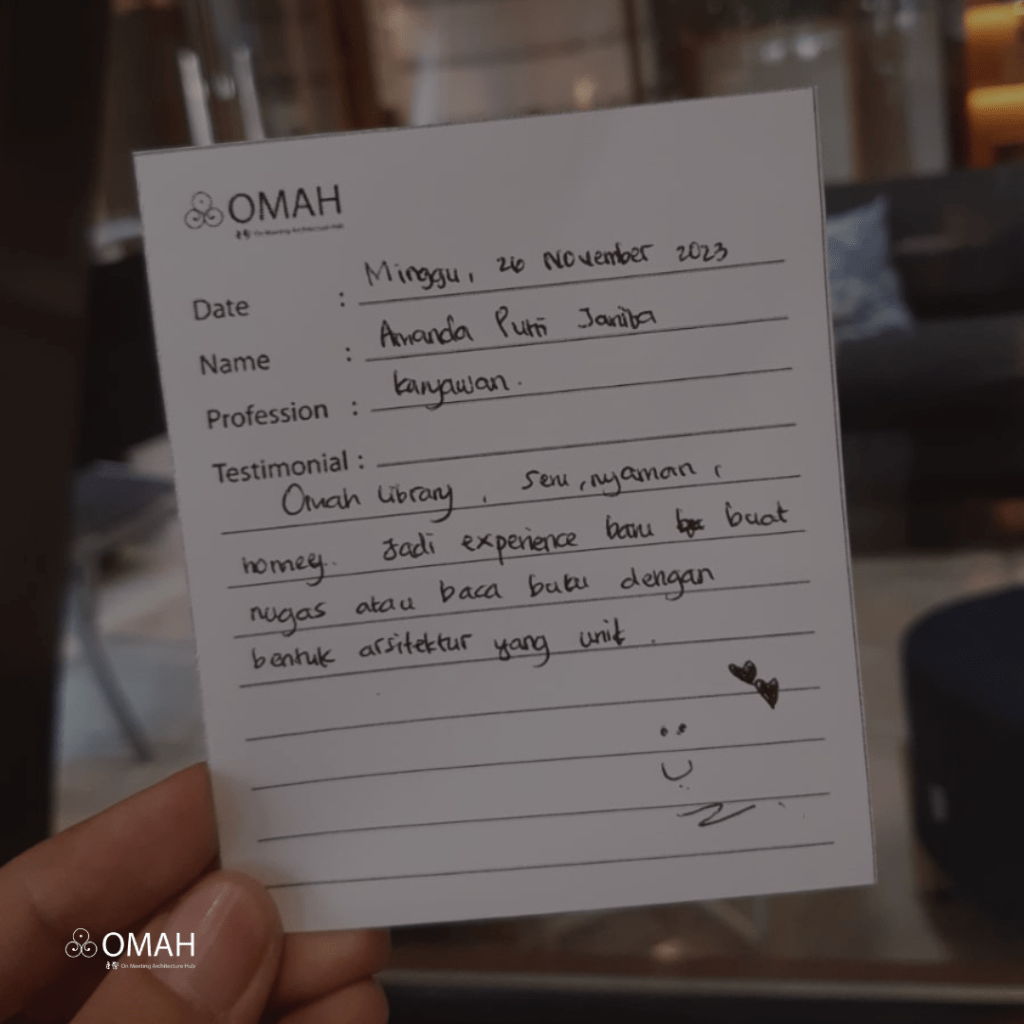 OMAH
On Meeting Architecture Hub
Date : Minggu, 26 November 2023
Name : Amanda Putri Janita
Profession : karyawan.
Testimonial :
Omah Library, seru, nyaman,
homey. Jadi experience baru buat
nugas atau baca buku dengan
bentuk arsitektur yang unik.
OMAH
On Meeting Architecture Hub